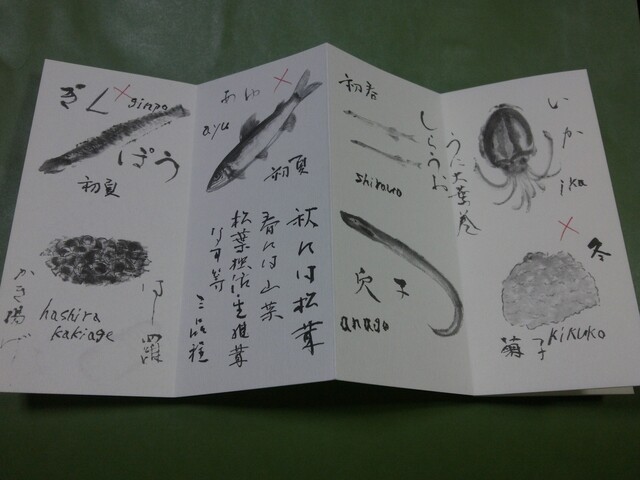 ぎん
ginpo
ぽう
初夏
はし羅
hashira
kakiage
かき揚げ
あゆ
ayu
初夏
秋には松茸
春には山菜
生椎茸
等
三品種
初春
しらうお
shirauo
うに大葉巻
穴子
anago
いか
ika
冬
kikuko
菊子